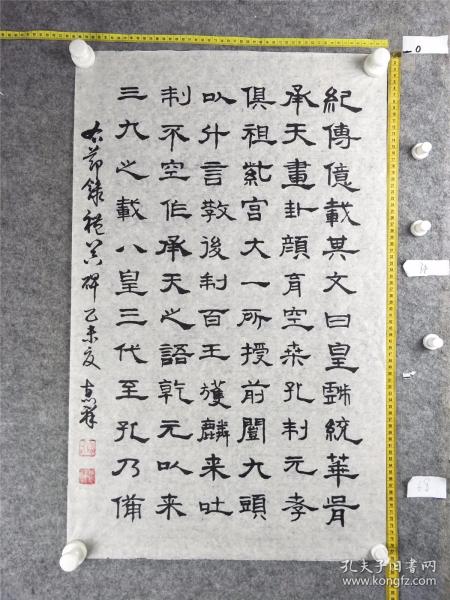 紀傳億載其文曰皇戲統華胥
承天畫卦顏育空桑孔制元孝
俱祖紫宮大一所授前闓九頭
以什言教後制百王獲麟来吐
制不空作承天之語乾元以来
三九之載八皇三代至孔乃備
右節録禮器碑乙未夏
孔夫子旧书网
www.kongfz.com